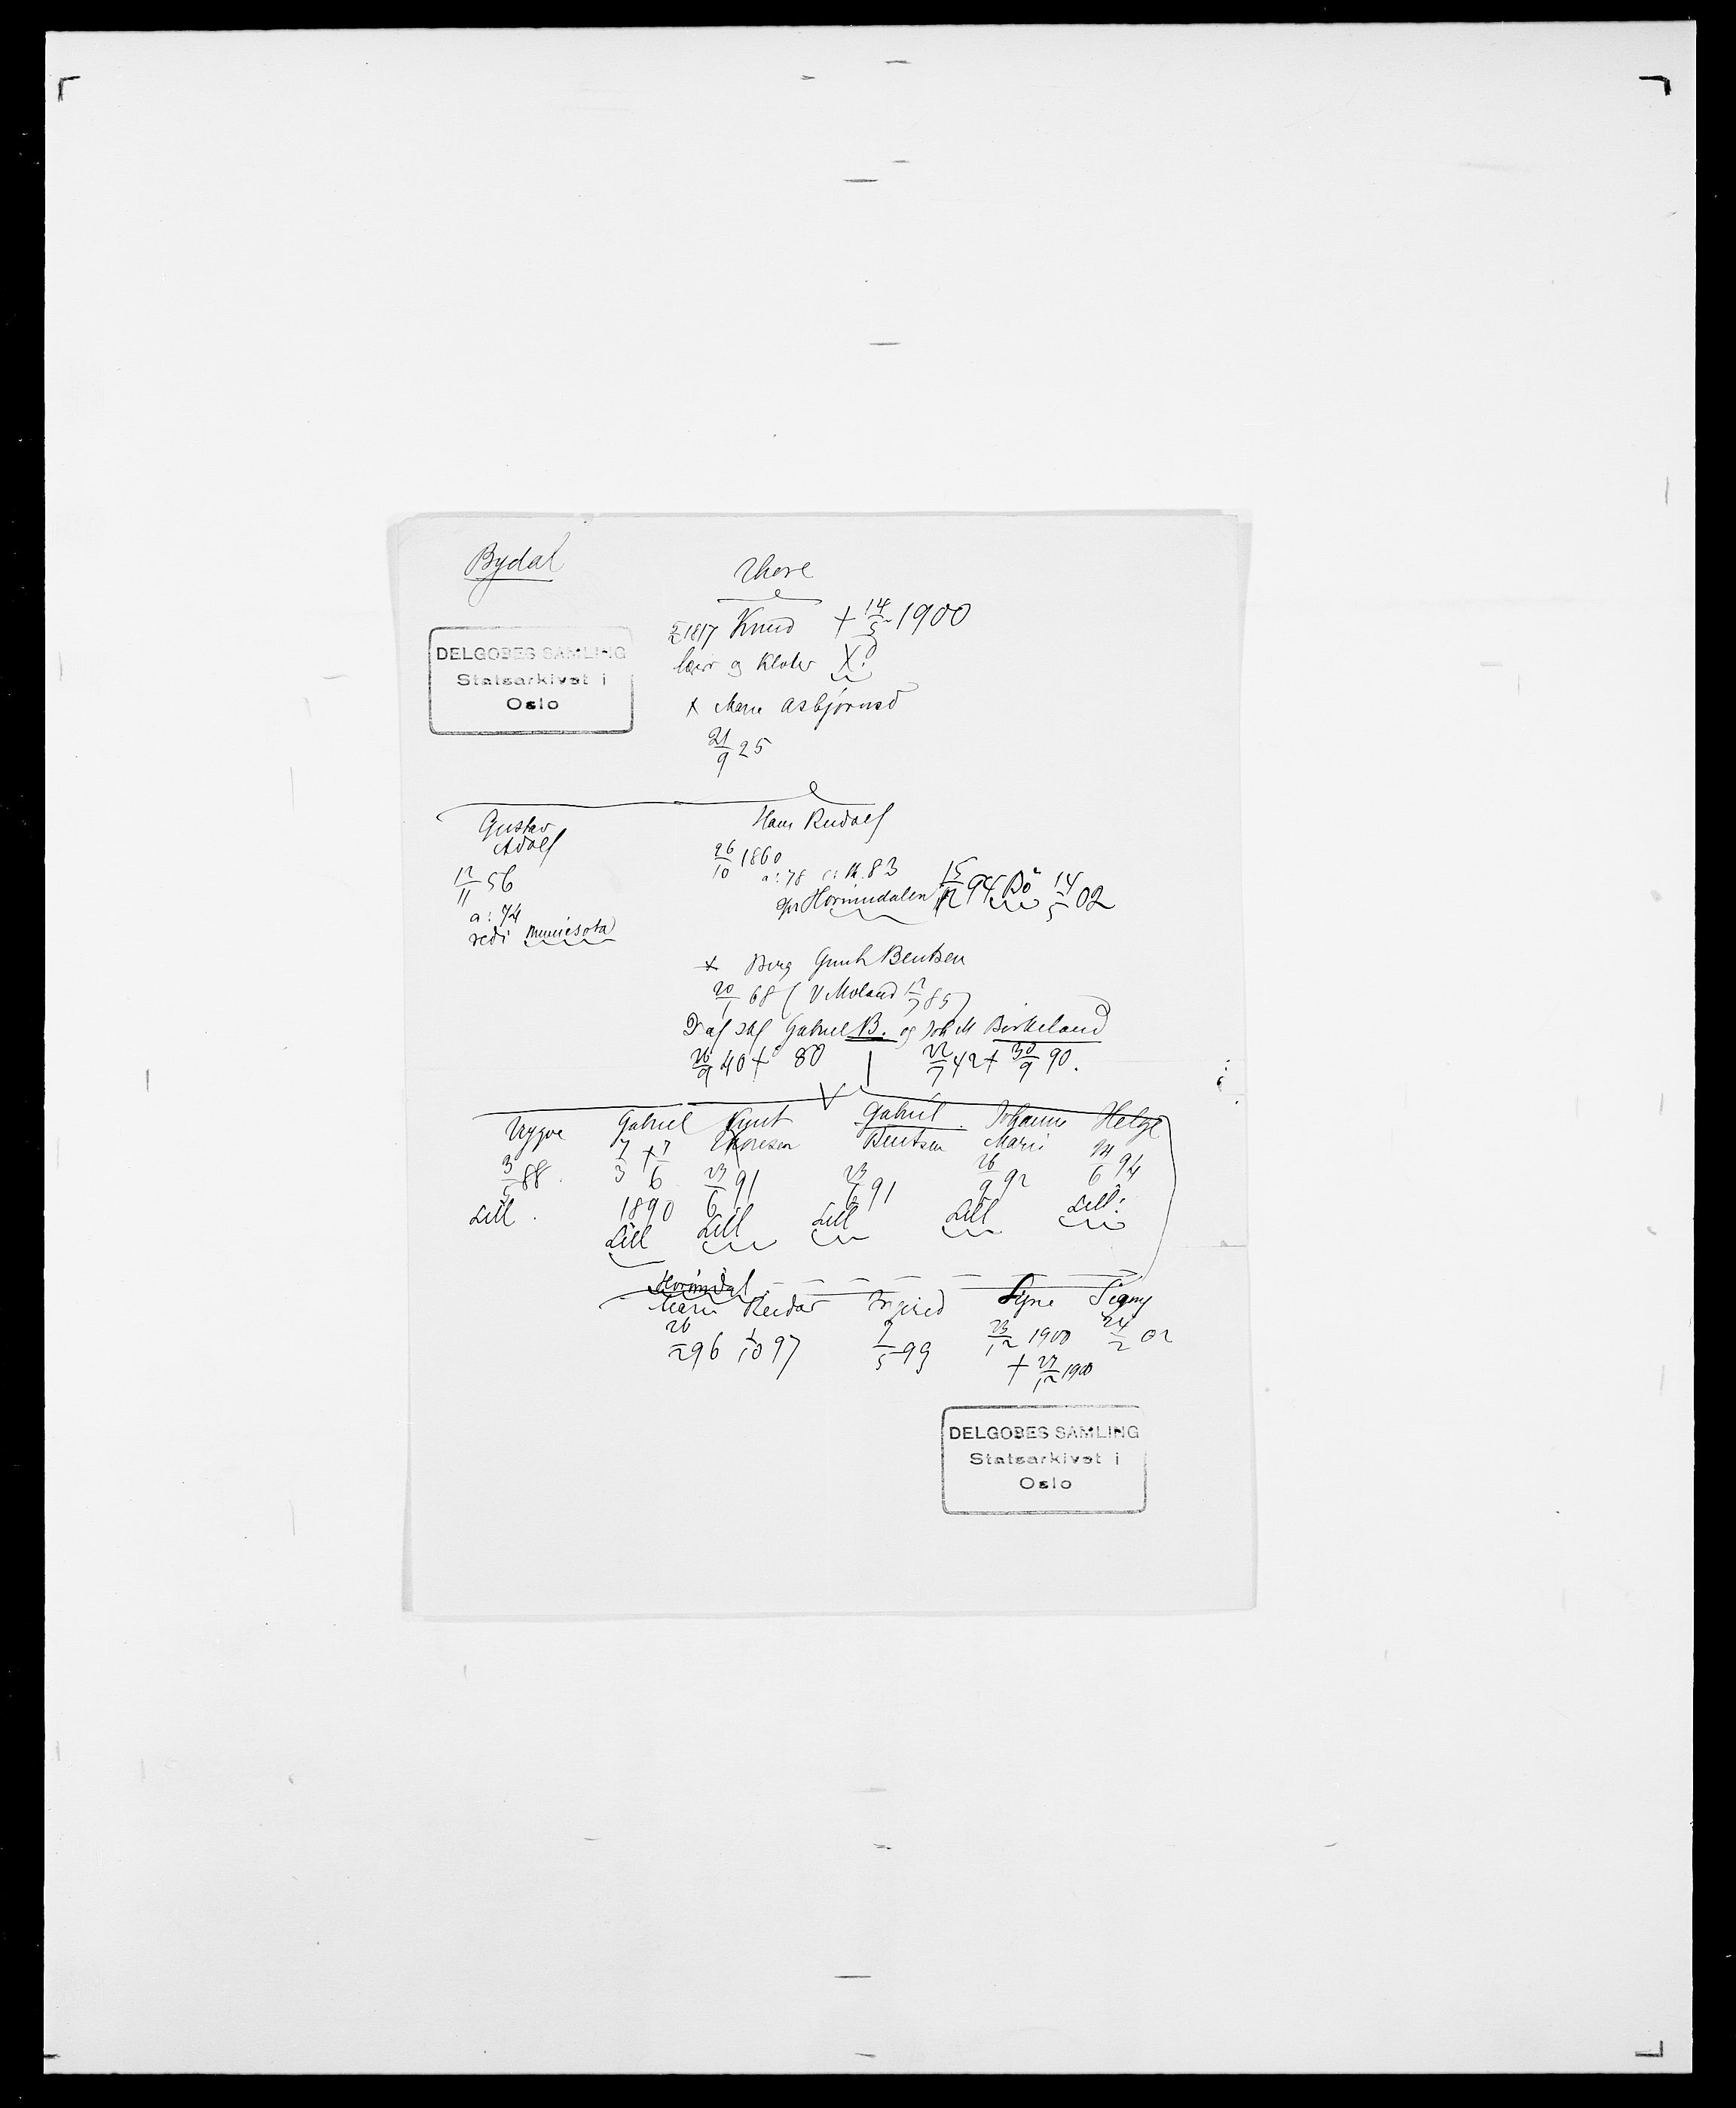 Bydal
Thore
1817 Knud + 14/5 1900
lærer og Klokker
x Marie Asbjørnsd
21/9 25
DELGOBES SAMLING
Statsarkivet i
Oslo
Gustav
Adolf
12/11 56
a: 74
Hans Rudolf
26/10 1860
a: 78 83
Hornindalen 15/12 94 Bø 14/5 02
x Berg Gunh Bentsen
20/1 68 (V Moland 12/7 85)
D af Gabriel B. og Joh M Birkeland
26/9 40 + 80
22/7 42 + 30/9 90.
Trygve
3/5 88.
Lill.
Gabriel
7/3 + 7/6
1890
Lill
Knut
23/6 91
Lill
Gabriel
Bentsen
23/6 91
Lill
Johanne
Marie
26/9 92
Lill
Helge
6 94
Lill:
Hornindal
Marie
26/2 96
Reidar
1/10 97
Ingrid
7/5 99
Signe
23/12 1900
+ 27/12 1900
Signy
24/2 02
DELGOBES SAMLING
Statsarkivet i
Oslo